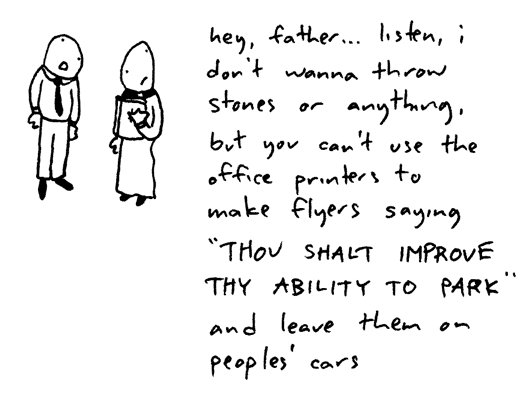 hey, father... listen, i
don't wanna throw
stones or anything,
but you can't use the
office printers to
make flyers saying
"THOU SHALT IMPROVE
THY ABILITY TO PARK"
and leave them on
peoples' cars